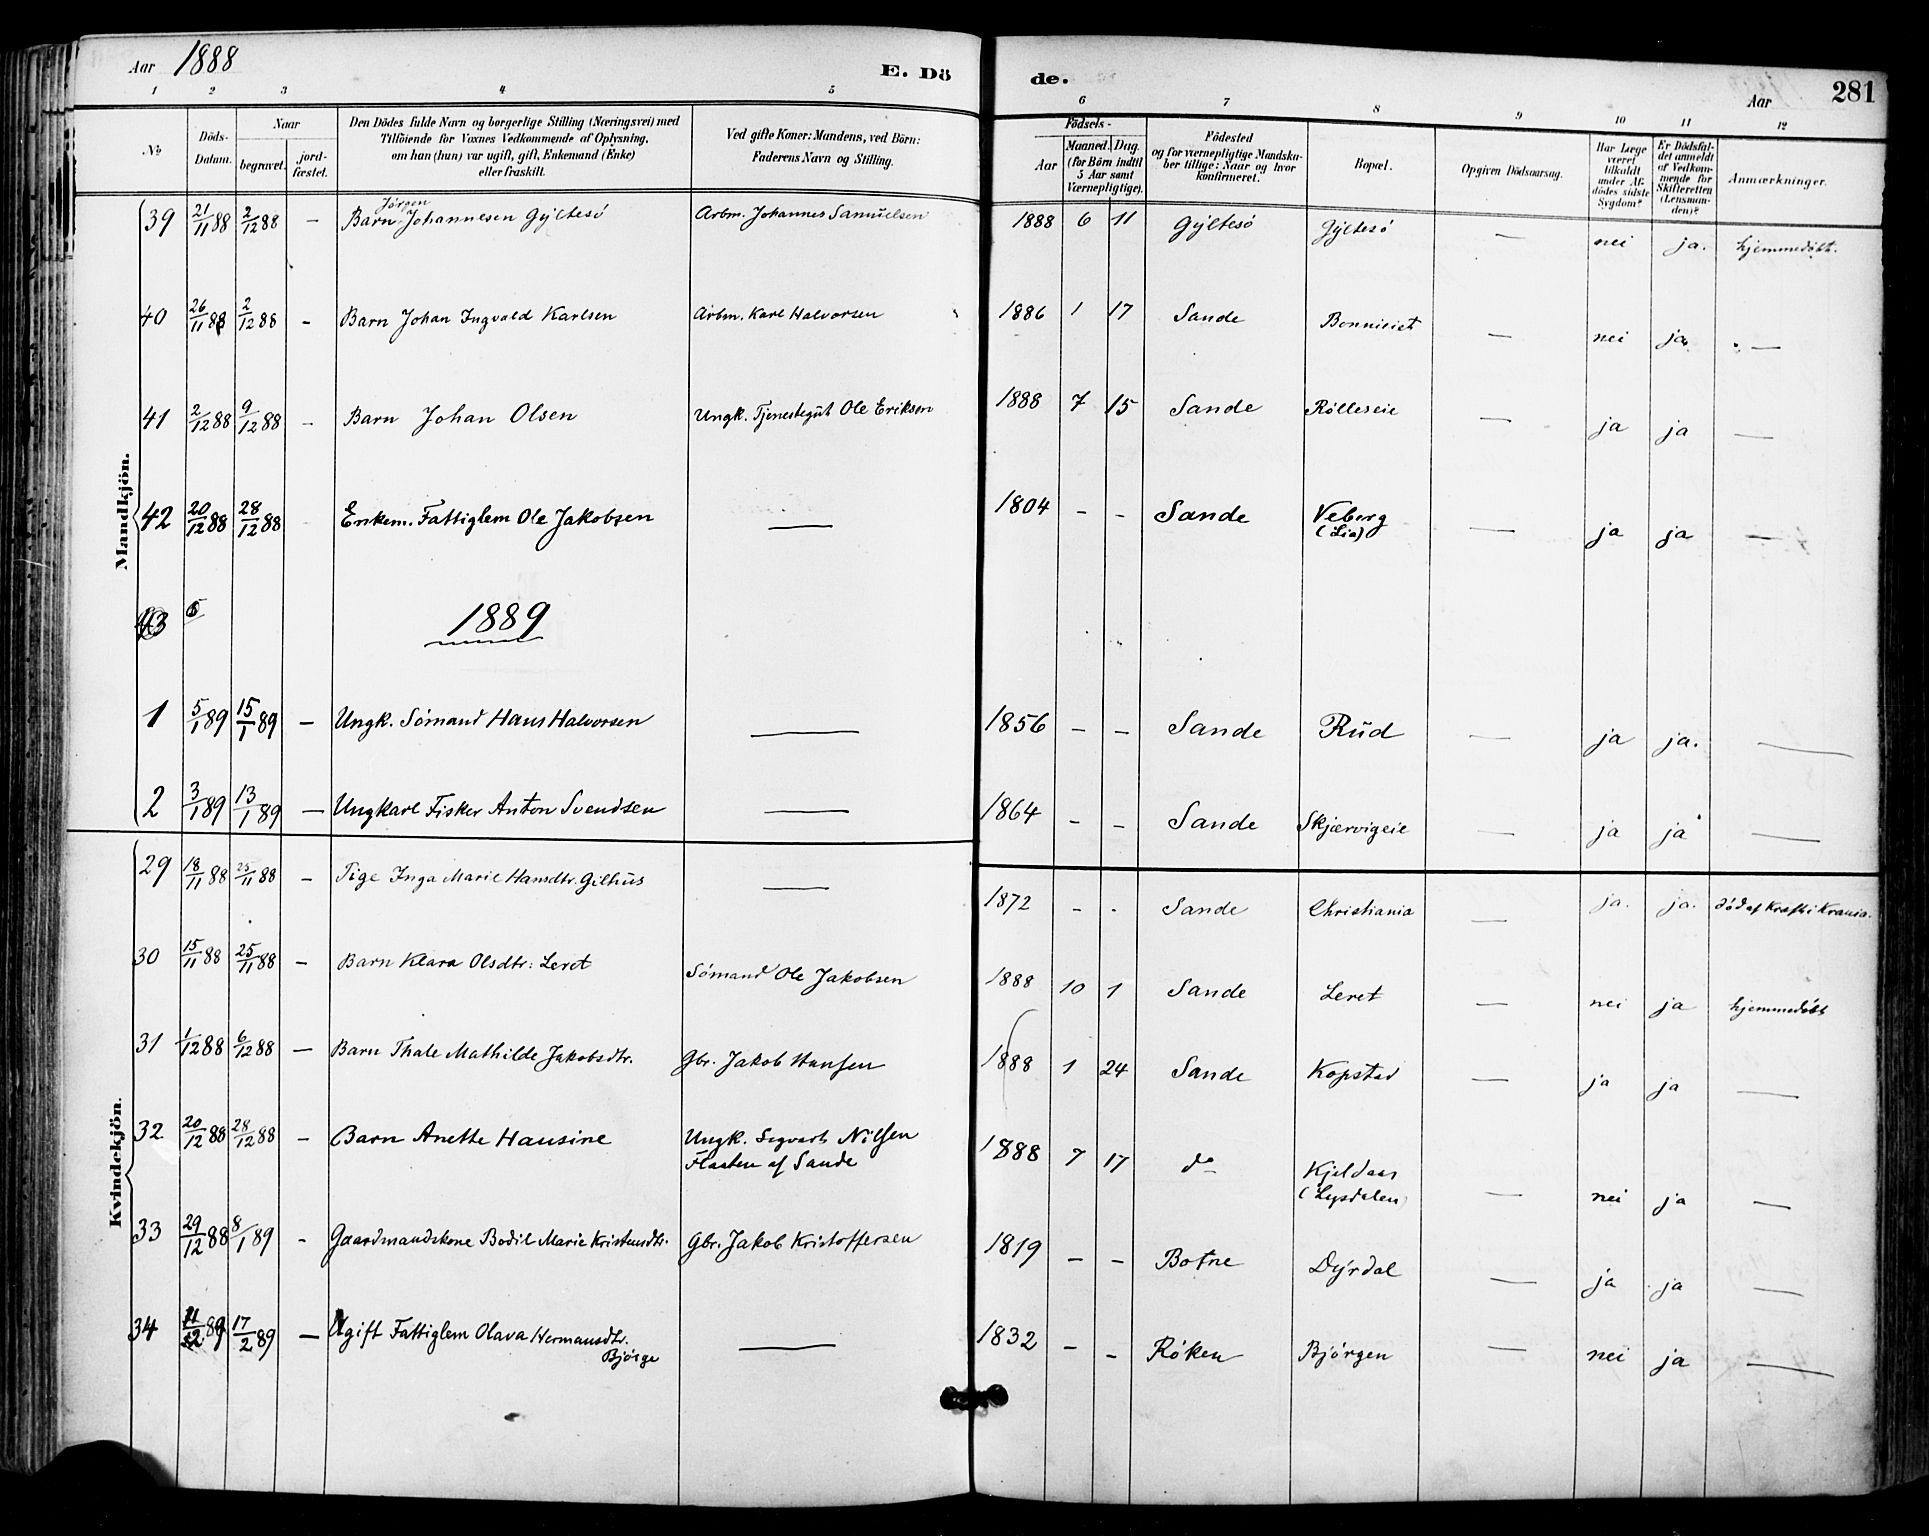 Aar 1888
E. Dö
de.
Aar
281
1 2 3 4 5 6 7 8 9 10 11 12
№
Döds-Datum.
Naar
begravet.
jord-fæstet.
Den Dödes fulde Navn og borgerlige Stilling (Næringsvei) med
Tilföiende for Voxnes Vedkommende af Oplysning,
om han (hun) var ugift, gift, Enkemand (Enke)
eller fraskilt.
Ved gifte Koner: Mandens, ved Börn:
Faderens Navn og Stilling.
Födsels-
Aar
Maaned. Dag.
(for Börn indtil
5 Aar samt
Værnepligtige).
Födested
og for værnepligtige Mandska-
ber tillige: Naar og hvor
konfirmeret.
Bopæl.
Opgiven Dödsaarsag.
Har Læge
været
tilkaldt
under Af-
dödes sidste
Sygdom?
Er Dödsfal-
det anmeldt
af Vedkom-
mende for
Skifteretten
(Lensman-
den)?
Anmærkninger.
Mandkjön.
39 21/11 88 2/12 88 — Barn Jørgen Johannesen Gyltesö Arbm. Johannes Samuelsen 1888 6 11 Gyltesö Gyltesö — nei ja. hjemmedöbt.
40 26/11 88 2/12 88 - Barn Johan Ingvald Karlsen Arbm. Karl Halvorsen 1886 1 17 Sande — nei ja. —
41 2/12 88 9/12 88 - Barn Johan Olsen Ungk. Tjenestegut Ole Eriksen 1888 7 15 Sande Rølleseie — ja ja —
42 20/12 88 28/12 88 Enkem. Fattiglem Ole Jakobsen — 1804 - - Sande Veberg (Lia) — ja ja —
43
1889
1 5/1 89 15/1 89 — Ungk. Sømand Hans Halvorsen — 1856 - - Sande Rud — ja ja. —
2 3/1 89 13/1 89 — Ungkarl Fisker Anton Svendsen — 1864 - - Sande Skjærvigeie — ja ja —
Kvindekjön.
29 18/11 88 25/11 88 - Pige Inga Marie Hansdtr. Gilhus — 1872 - - Sande Christiania — ja. ja. död af Kræft i Krania.
30 15/11 88 25/11 88 - Barn Klara Olsdtr. Leret Sömand Ole Jakobsen 1888 10 1 Sande Leret — nei ja hjemmedöbt
31 1/12 88 6/12 88 — Barn Thale Mathilde Jakobsdtr. Gbr. Jakob Hansen 1888 1 24 Sande Kopstad — ja ja —
32 20/12 88 28/12 88 - Barn Anette Hansine Ungk. Sigvart Nilsen
Flaaten af Sande 1888 7 17 do Kjeldaas
(Lysdalen) — nei ja —
33 29/12 88 8/1 89 - Gaardmandskone Bodil Marie Kristensdtr. Gbr. Jakob Kristoffersen 1819 - - Botne Dyrdal — ja ja —
34 17/2 89 — Ugift Fattiglem Olava Hermansdtr.
Bjørge — 1832 - - Røken Bjørgen — nei ja —